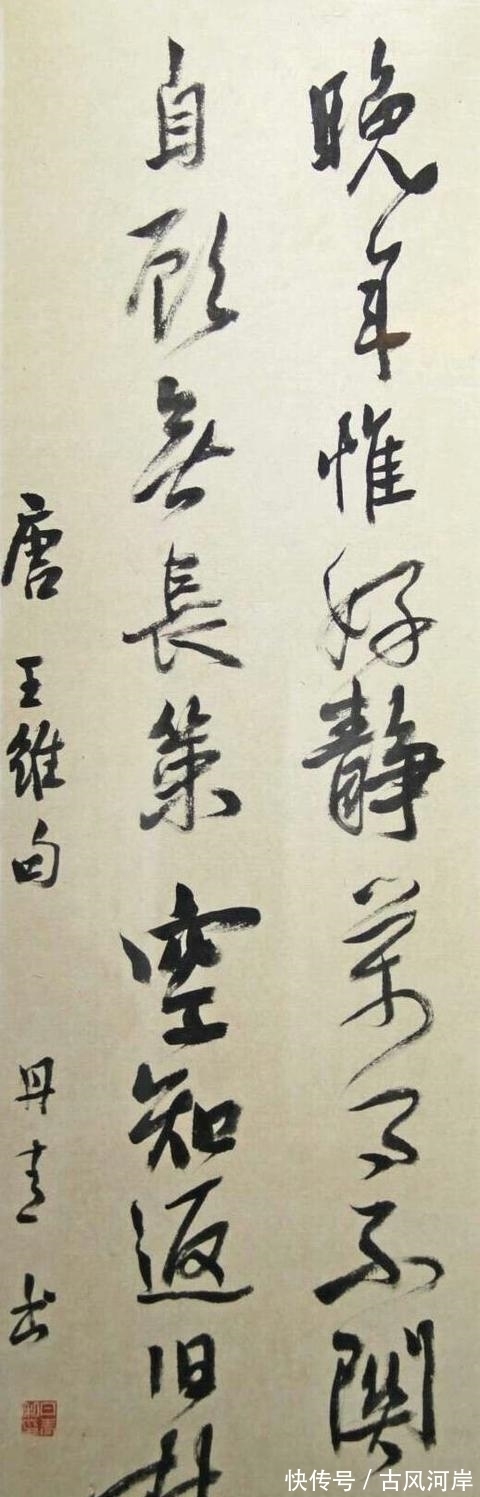 晚年惟好静萬事不関
自顾無長策空知返旧林
唐 王維句 丹青书
快传号 / 古风河岸